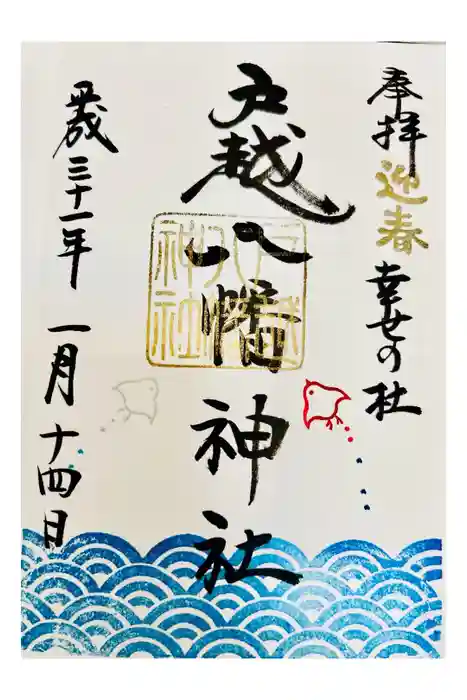 奉拝 迎春 幸せの社
戸越八幡神社
戸越
八幡
神社
平成三十一年 一月十四日